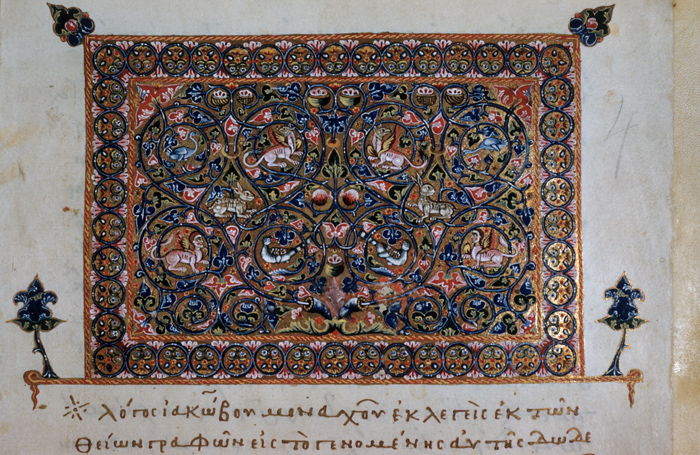 4
λόγος ἰακώβου μοναχοῦ ἐκλεγεὶς ἐκ τῶν
θείων γραφῶν εἰς τὸ γενομένης αὐτῆς δωδε